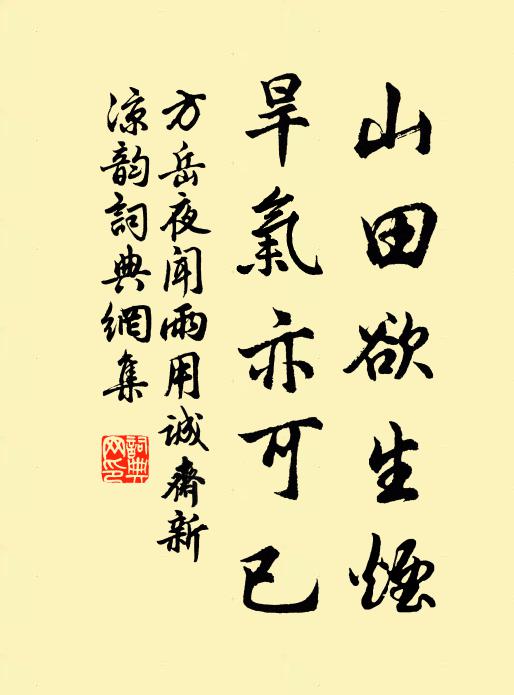 山田欲生煙
旱氣亦可已
方岳夜聞雨用誠齋新
涼韵詞典網集
詞典网印